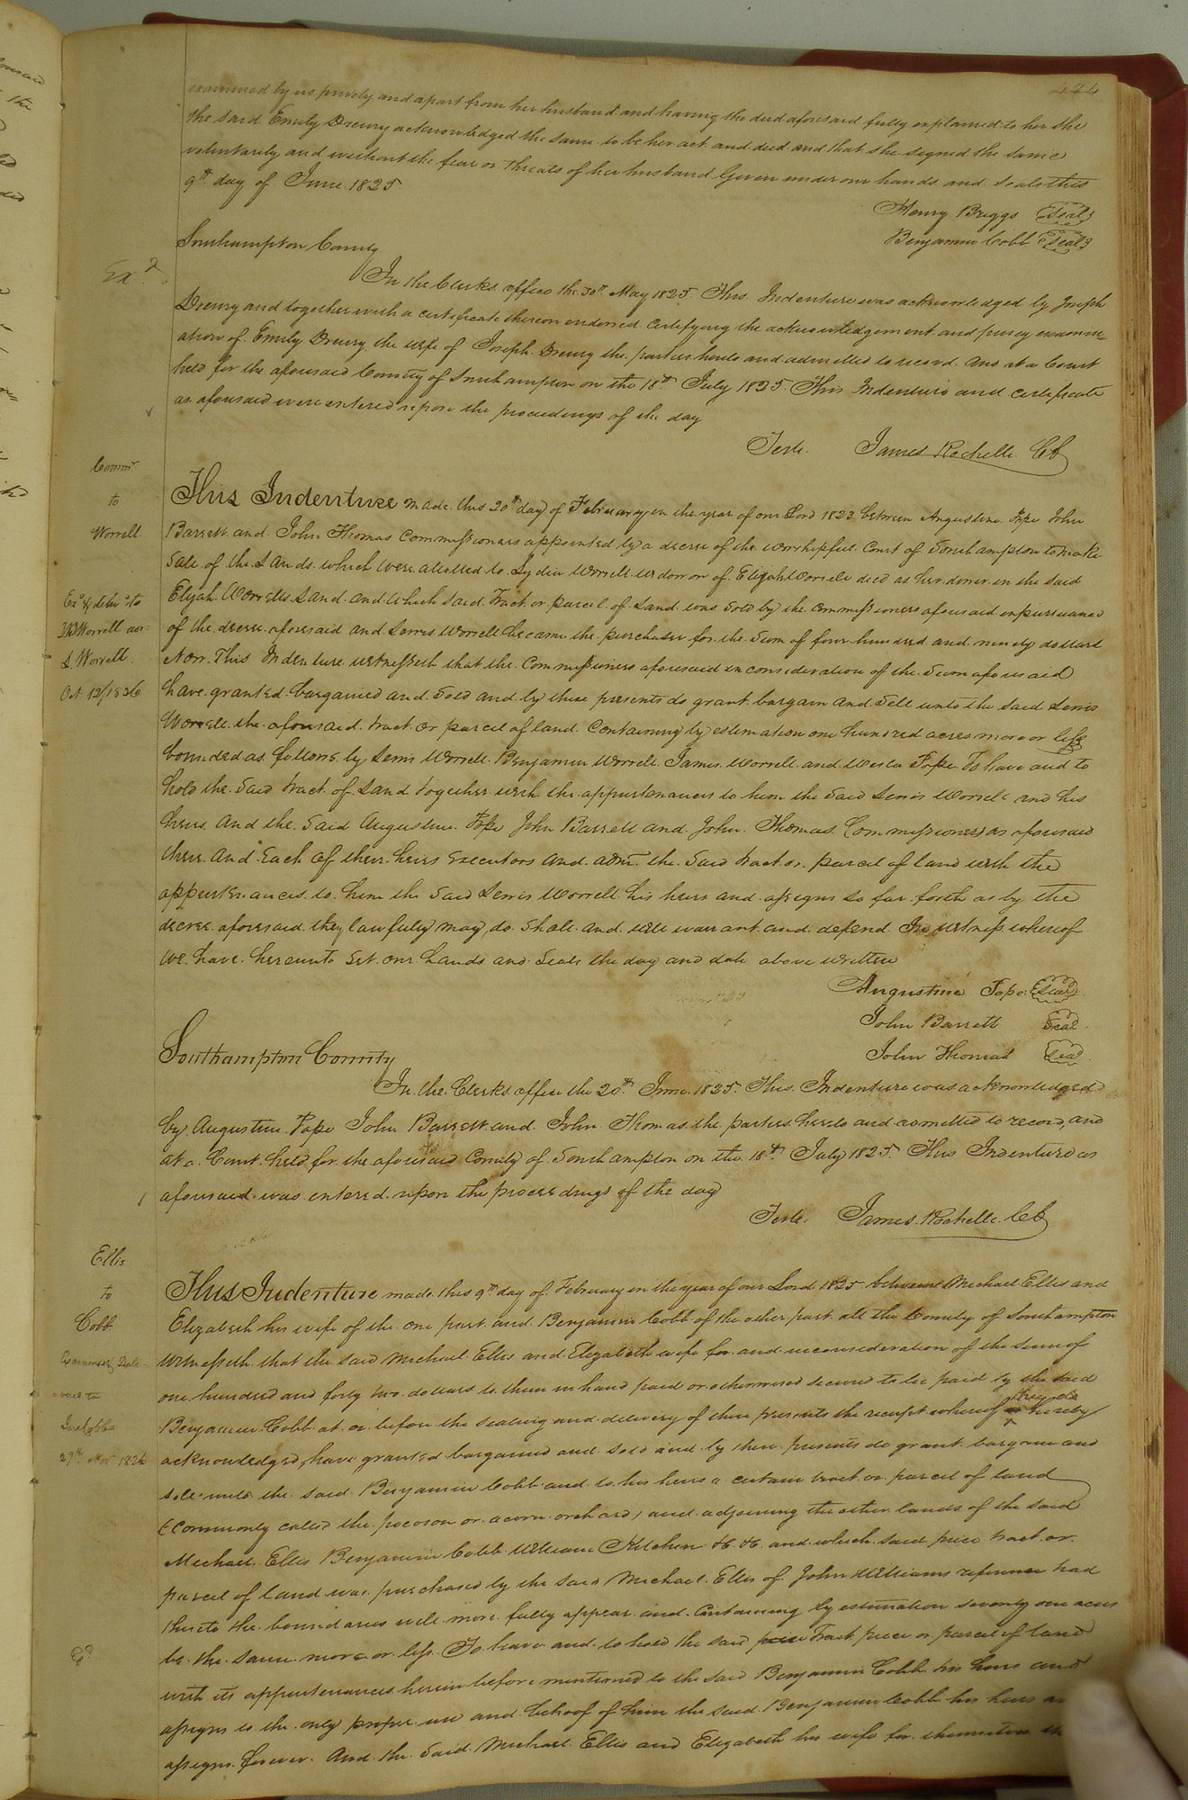 474
examined by us privily and apart from her husband and having the deed aforesaid fully explained to her she
the said Emily Drewry acknowledged the same to be her act and deed and that she signed the same
voluntarily and without the fear or threats of her husband Given under our hands and seals this
9th day of June 1825
Henry Briggs Seal
Benjamin Cobb Seal
Southampton County
Exd
In the Clerks office the 30th May 1825 This Indenture was acknowledged by Joseph
Drewry and together with a certificate thereon endorsed certifying the acknowledgement and privy examin
ation of Emily Drewry the wife of Joseph Drewry the parties hereto and admitted to record And at a Court
held for the aforesaid County of Southampton on the 18th July 1825 This Indenture and certificate
as aforesaid were entered upon the proceedings of the day
Teste James Rochelle CC
Commrs
to
Worrell
Exd & delivd to
Worrell
L Worrell
Oct 12/1836
This Indenture made this 20th day of February in the year of our Lord 1823 between Augustine Pope John
Barrett and John Thomas Commissioners appointed by a decree of the worshipful Court of Southampton to make
Sale of the Lands which were allotted to Lydia Worrell widow of Elijah Worrell decd as her dower in the said
Elijah Worrells Land and which said Tract or parcel of Land was sold by the commissioners aforesaid in pursuance
of the decree aforesaid and Lewis Worrell became the purchaser for the Sum of four hundred and ninety dollars
Now This Indenture witnesseth that the Commissioners aforesaid in consideration of the Sum aforesaid
have granted bargained and Sold and by these presents do grant bargain and Sell unto the said Lewis
Worrell the aforesaid tract or parcel of land Containing by estimation one hundred acres more or less
bounded as follows by Lewis Worrell Benjamin Worrell James Worrell and Wesla Pope To have and to
hold the Said tract of Land together with the appurtenances to him the Said Lewis Worrell and his
heirs And the Said Augustine Pope John Barrett and John Thomas Commissioners as aforesaid
their And Each of their heirs Executors and adm the Said tract or parcel of land with the
appurtenances to him the Said Lewis Worrell his heirs and assigns So far forth as by the
decree aforesaid they lawfully may do Shall and will warrant and defend In witness whereof
we have hereunto Set our hands and Seals the day and date above written
Augustine Pope Seal
John Barrett Seal
John Thomas Seal
Southampton County
In the Clerks office the 20th June 1825 This Indenture was acknowledged
by Augustine Pope John Barrett and John Thomas the parties hereto and admitted to record and
at a Court held for the aforesaid County of Southampton on the 18th July 1825 This Indenture as
aforesaid was entered upon the proceedings of the day
Teste James Rochelle CC
Ellis
to
Cobb
Examined & Deld
29th Nov 1826
This Indenture made this 9th day of February in the year of our Lord 1825 between Michael Ellis and
Elizabeth his wife of the one part and Benjamin Cobb of the other part all the County of Southampton
witnesseth that the said Michael Ellis and Elizabeth wife for and in consideration of the sum of
one hundred and forty two dollars to them in hand paid or otherwised secured to be paid by the said
Benjamin Cobb at or before the sealing and delivery of these presents the receipt whereof they do hereby
acknowledged have granted bargained and sold and by these presents do grant bargain and
sell unto the said Benjamin Cobb and to his heirs a certain tract or parcel of land
(Commonly called the pocoson or acorn orchard) and adjoining the other lands of the said
Michael Ellis Benjamin Cobb William Kitchen &c &c and which said piece tract or
parcel of land was purchased by the said Michael Ellis of John Williams reference had
thereto the boundaries will more fully appear and Containing by estimation seventy one acres
be the same more or less To have and to hold the said Tract piece or parcel of land
with its appurtenances herein before mentioned to the said Benjamin Cobb his heirs and
assigns to the only proper use and behoof of him the said Benjamin Cobb his heirs
assigns forever And the Said Michael Ellis and Elizabeth his wife for themselves